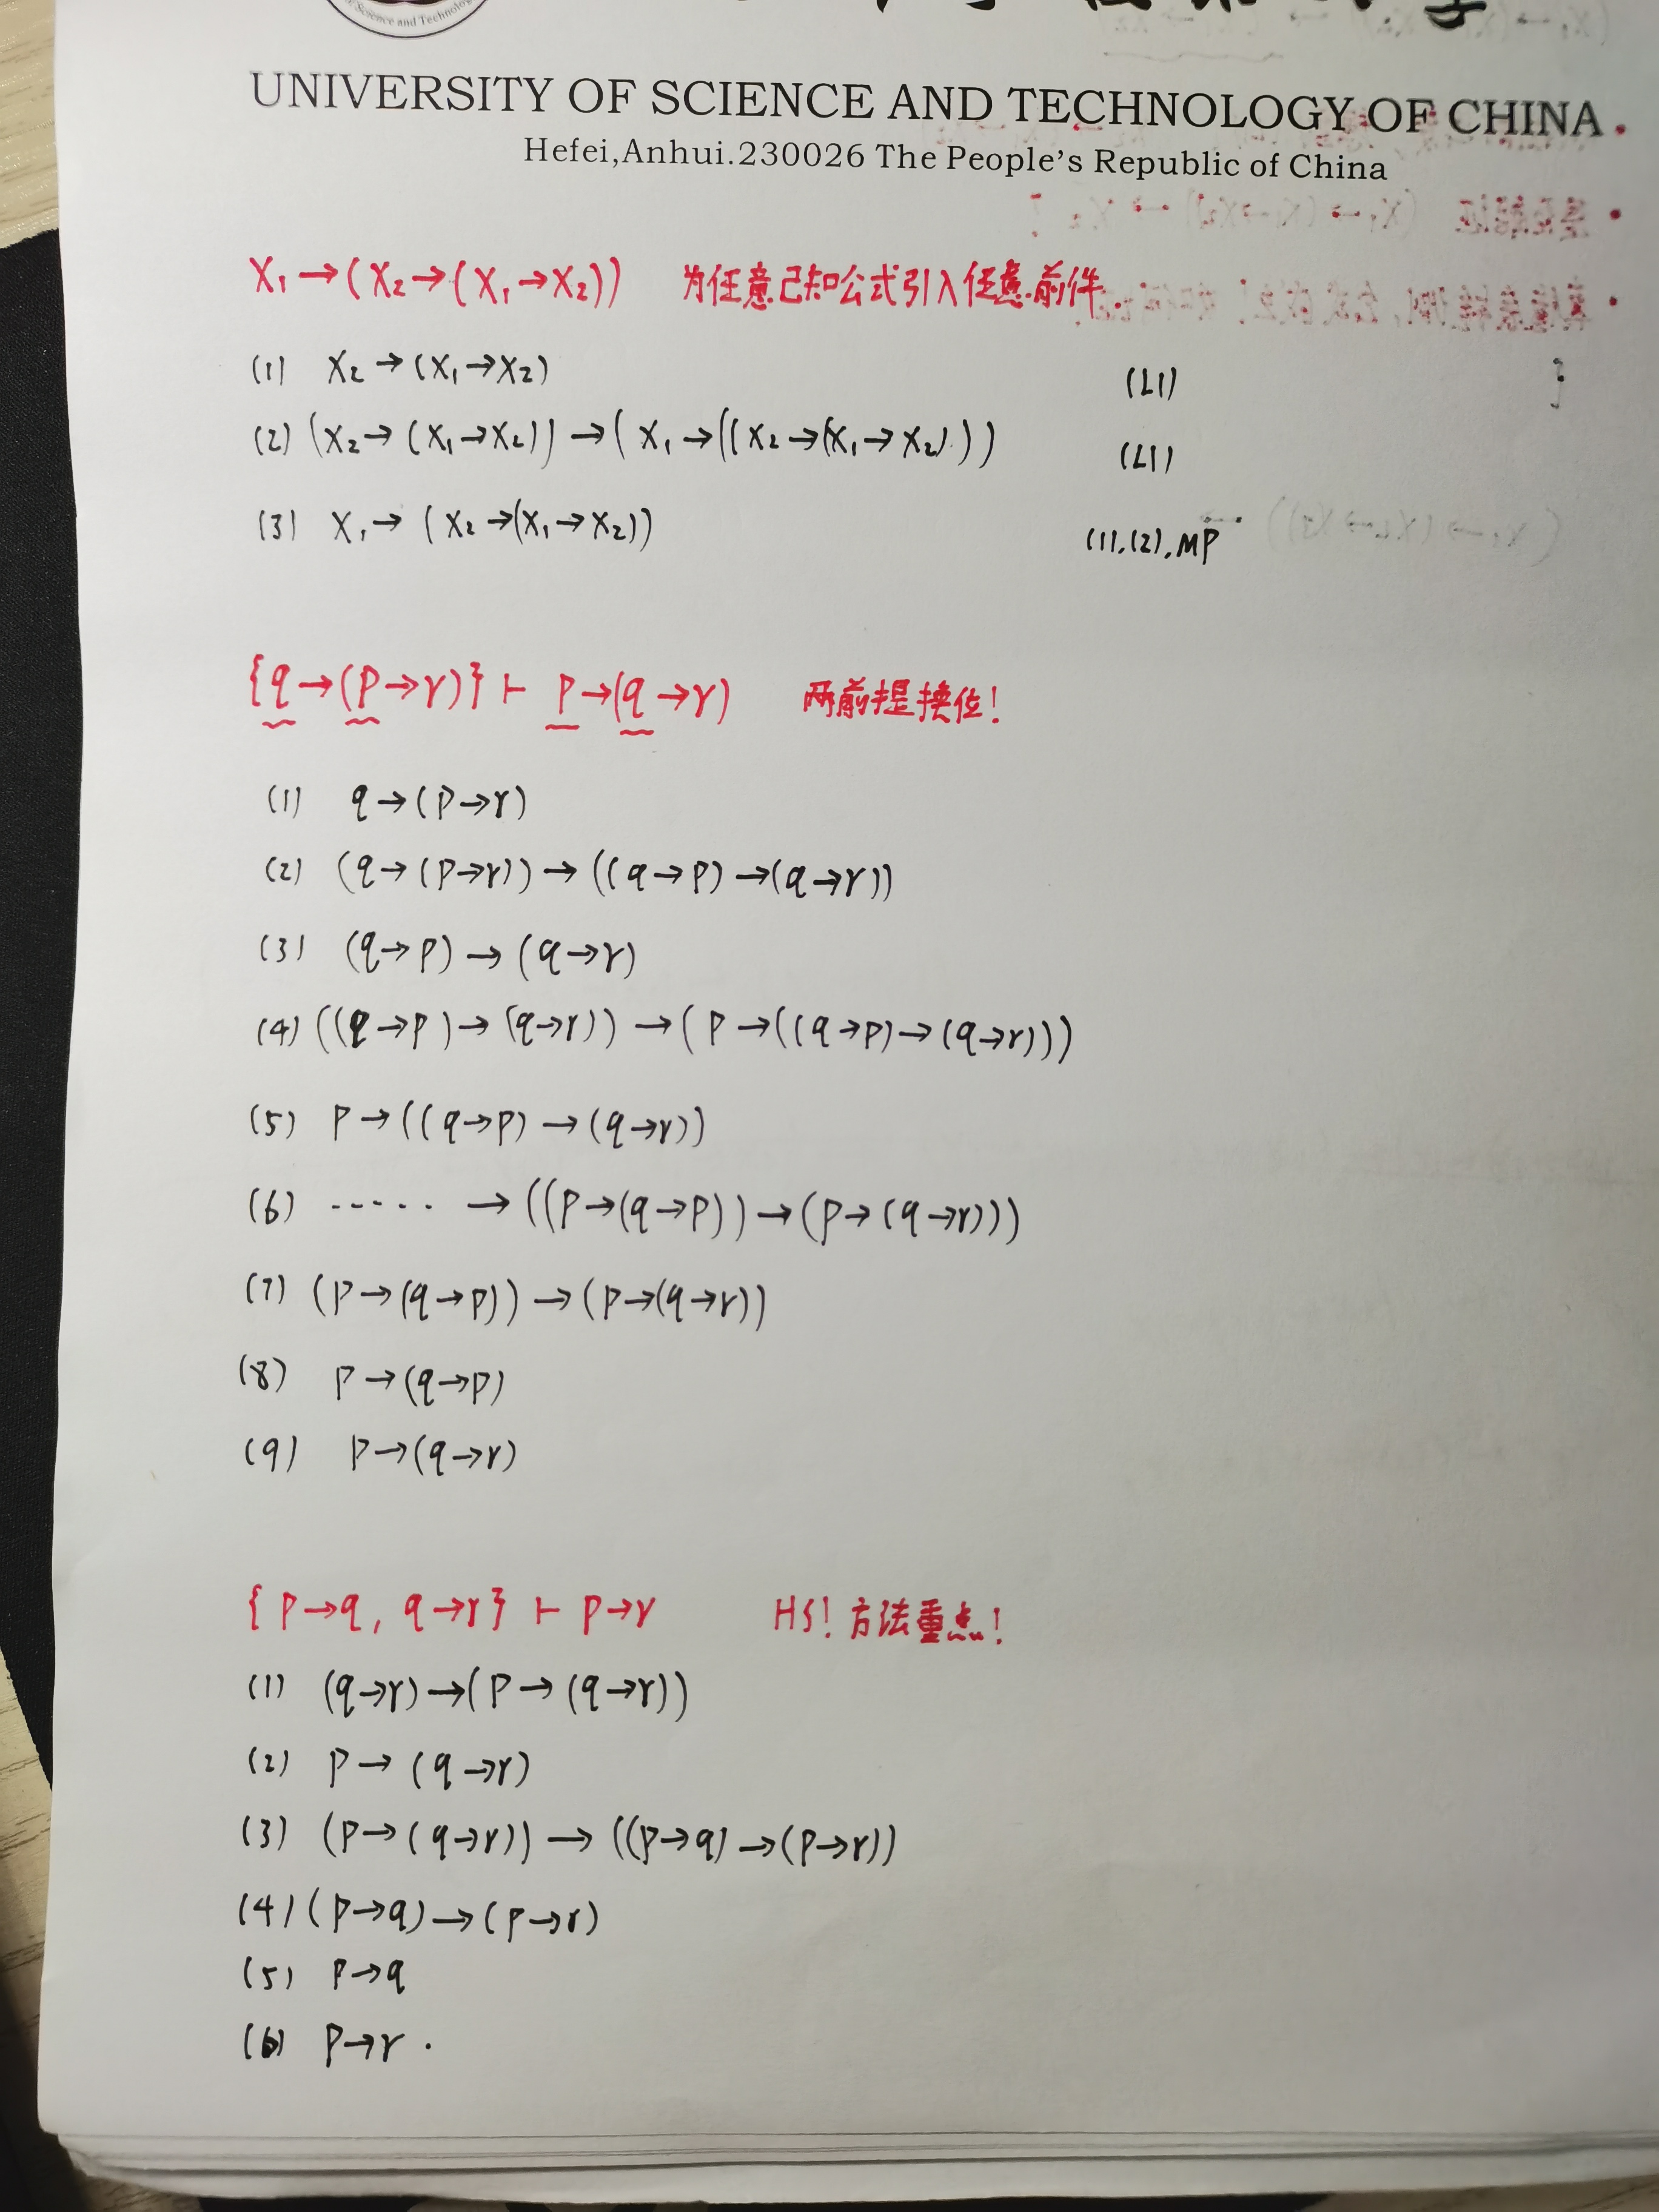 Science and Technology
UNIVERSITY OF SCIENCE AND TECHNOLOGY OF CHINA
Hefei,Anhui.230026 The People's Republic of China
X₁→(X₂→(X₁→X₂)) 为任意已知公式引入任意前件.
(1) X₂→(X₁→X₂) (L1)
(2) (X₂→(X₁→X₂))→(X₁→((X₂→(X₁→X₂)))) (L1)
(3) X₁→(X₂→(X₁→X₂)) (1).(2).MP
{q→(p→r)}⊢p→(q→r) 两前提换位!
(1) q→(p→r)
(2) (q→(p→r))→((q→p)→(q→r))
(3) (q→p)→(q→r)
(4) ((q→p)→(q→r))→(p→((q→p)→(q→r)))
(5) p→((q→p)→(q→r))
(6) -----→((p→(q→p))→(p→(q→r)))
(7) (p→(q→p))→(p→(q→r))
(8) p→(q→p)
(9) p→(q→r)
{p→q, q→r}⊢p→r HS! 方法重点!
(1) (q→r)→(p→(q→r))
(2) p→(q→r)
(3) (p→(q→r))→((p→q)→(p→r))
(4) (p→q)→(p→r)
(5) p→q
(6) p→r.